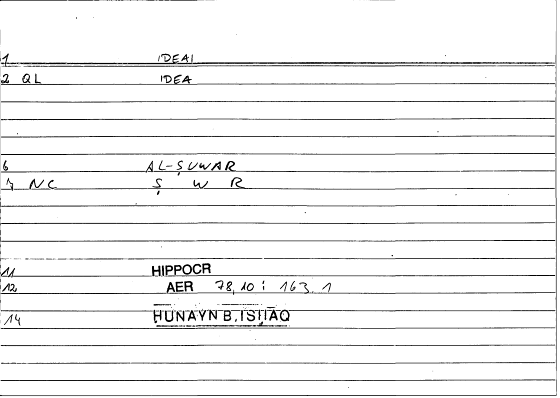 1 IDEAI
2 QL IDEA
6 AL-ṢUWAR
7 NC Ṣ W R
11 HIPPOCR
12 AER 78,10 : 163, 1
14 ḤUNAYN B. ISḤĀQ